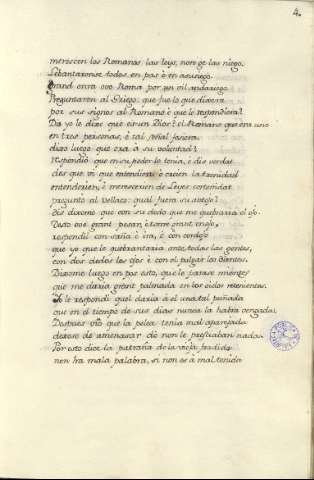 4.
merescen los Romanos las leys, non ge las niego.
Lebantaronse todos en pas è en asusiego
Grand onra ovo Roma por un vil andariego
Preguntaron al Griego que fue lo que dixiera
por sus signos al Romano è que le respondiera?
Dis yo le dixe que es un Dios: el Romano que era uno
en tres personas, è tal señal fasiera
dixe luego que era à su voluntad?
Respondiò que en su poder lo tenia, è dis verdat
des que vi que entendiera è creien la trenidad
entendi que merescien de Leyes certenidat
pregunto al vellaco: qual fuera su antojo?
Dis dixome que con su dedo que me quebraria el ojo
Desto ove grant pesar, è tomé grant enojo,
respondil con saña è ira, è con cordojo
que yo que le quebrantaria ante todas las gentes,
con dos dedos los ojos è con el pulgar los dientes.
Dixome luego en pos esto, que le parase mientes
que me daria grant palmada en los oidos retenientes.
Yo le respondi quel daria à èl una tal puñada
que en el tiempo de sus dias nunca la habria vengada,
Despues vió que la pelea tenia mal aparejada
dexose de amenasar do non le presciaban nada.
Por esto dice la patraña de la vieja fardida
non ha mala palabra, si non es à mal tenida